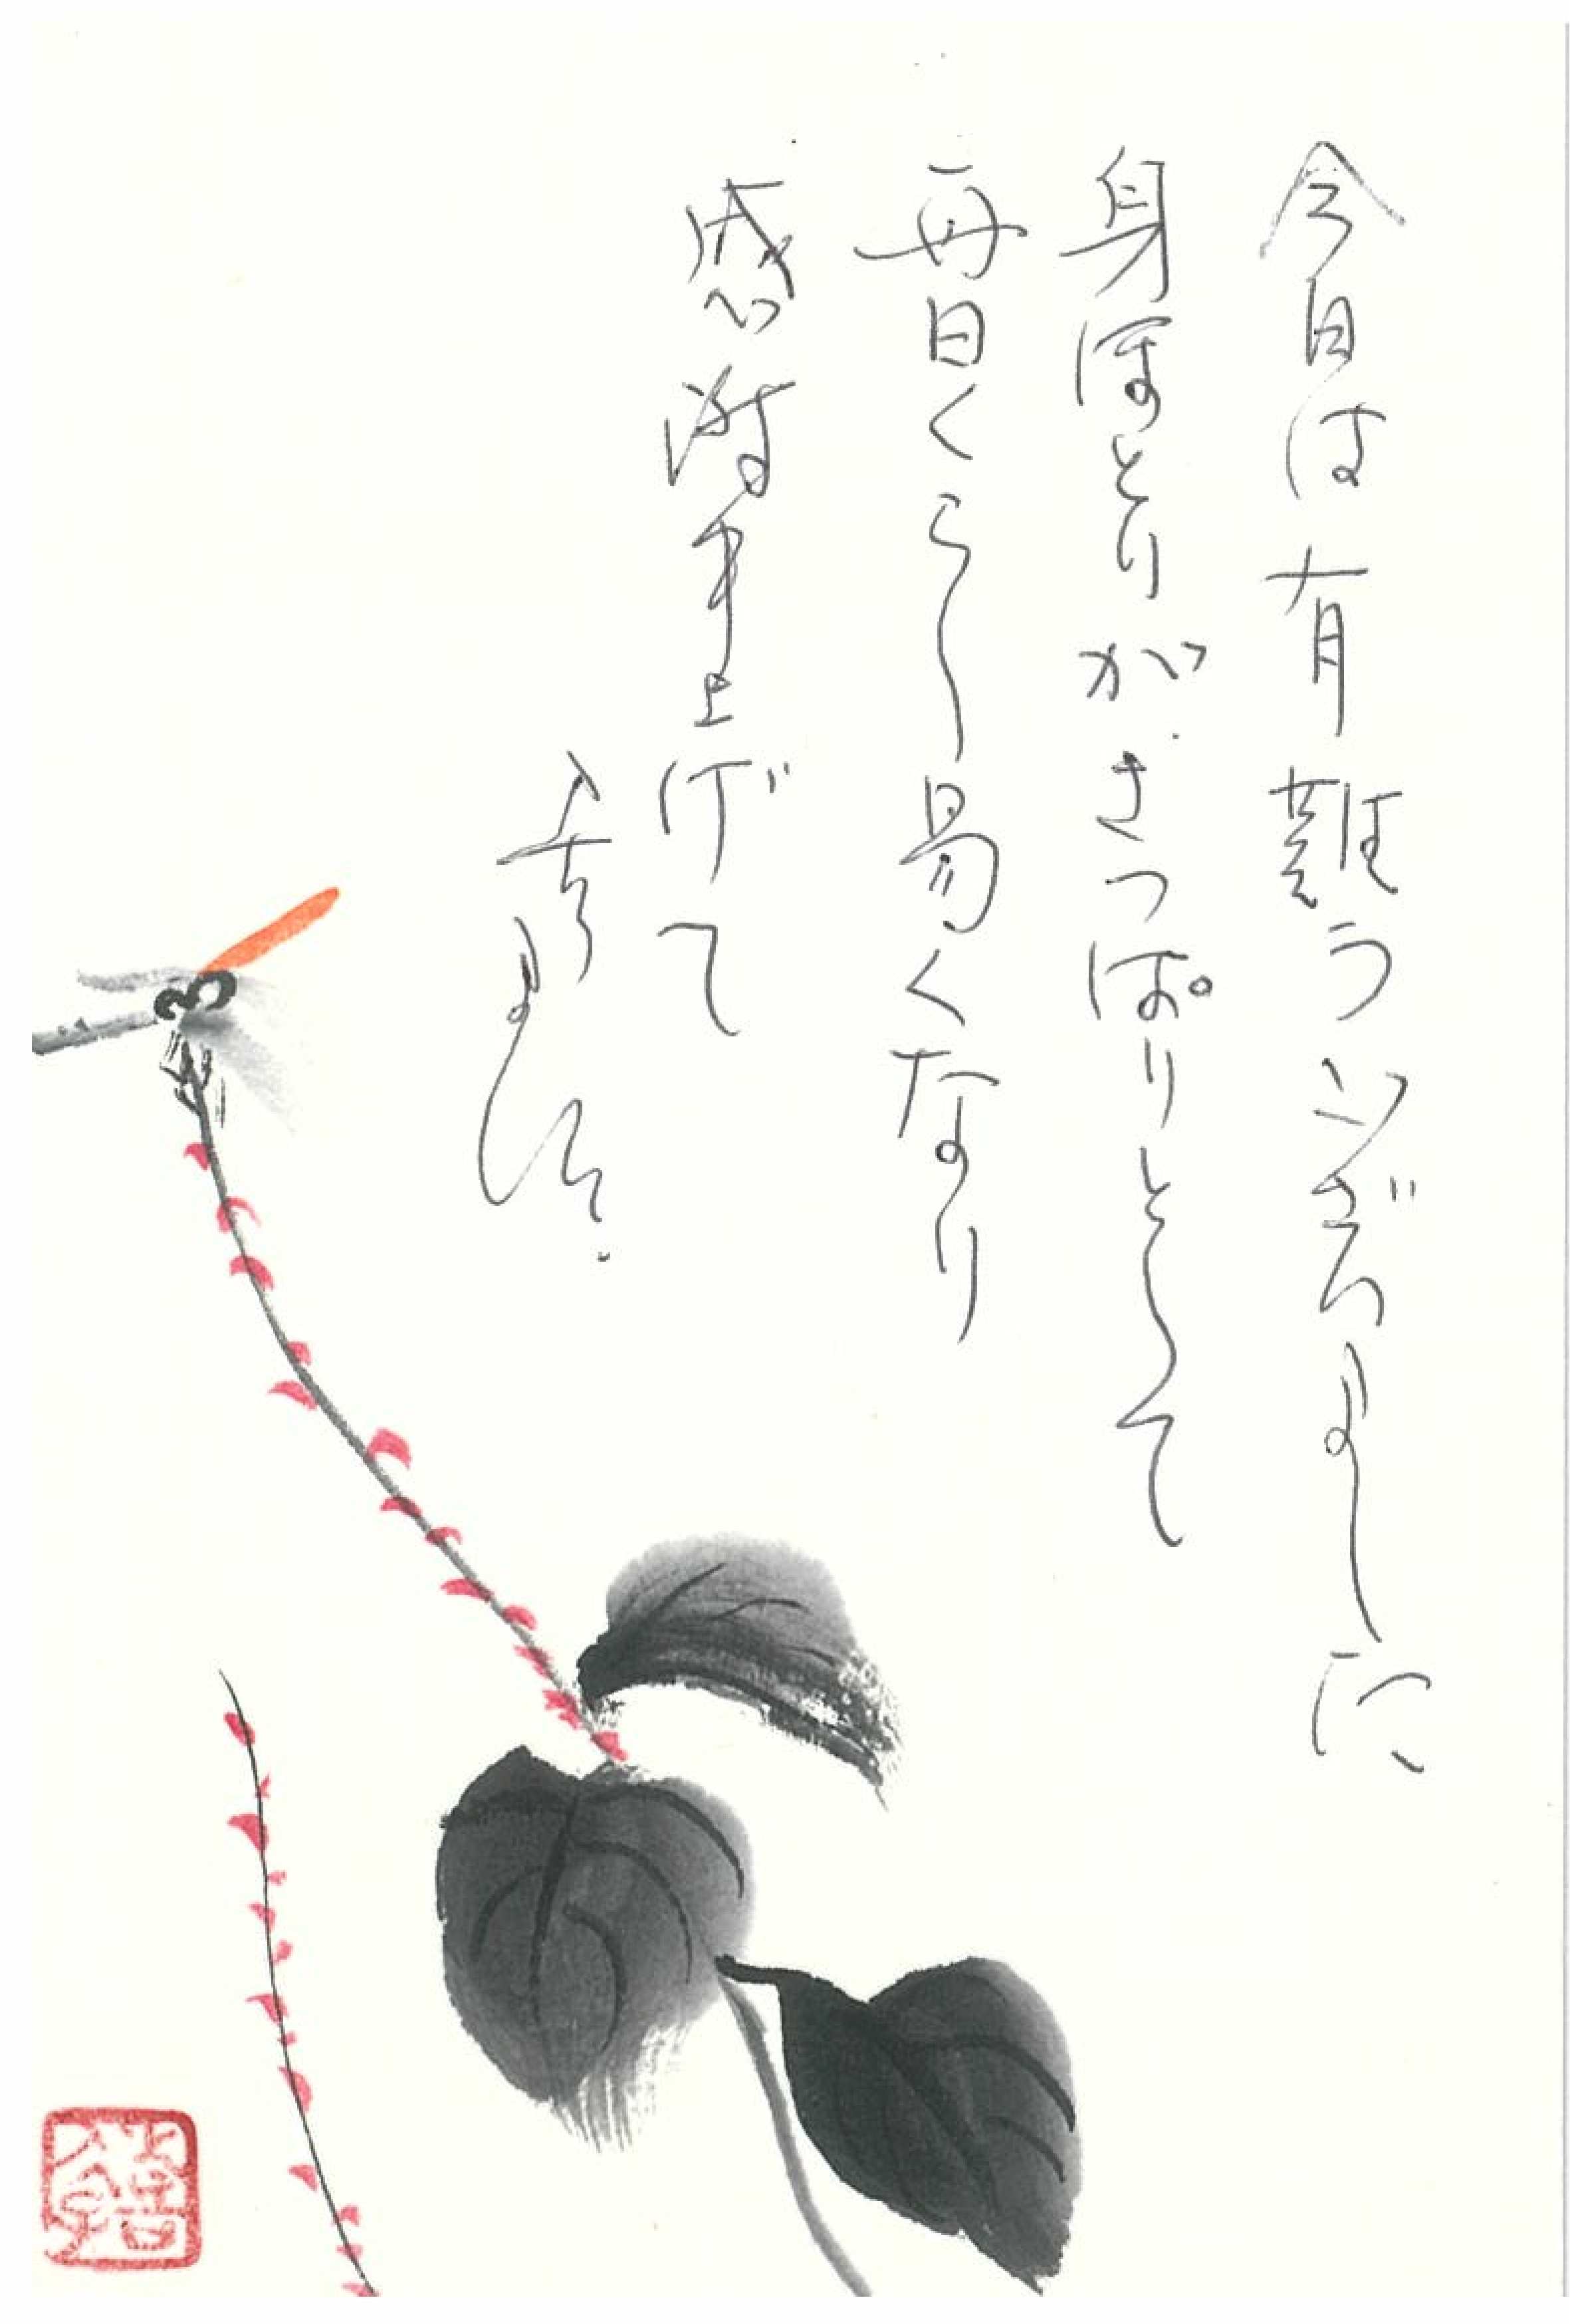 今日は有難うござゐましに
身ほとりがさっぱりとして
毎日くらし易くなり
感謝申上げて
居ります.